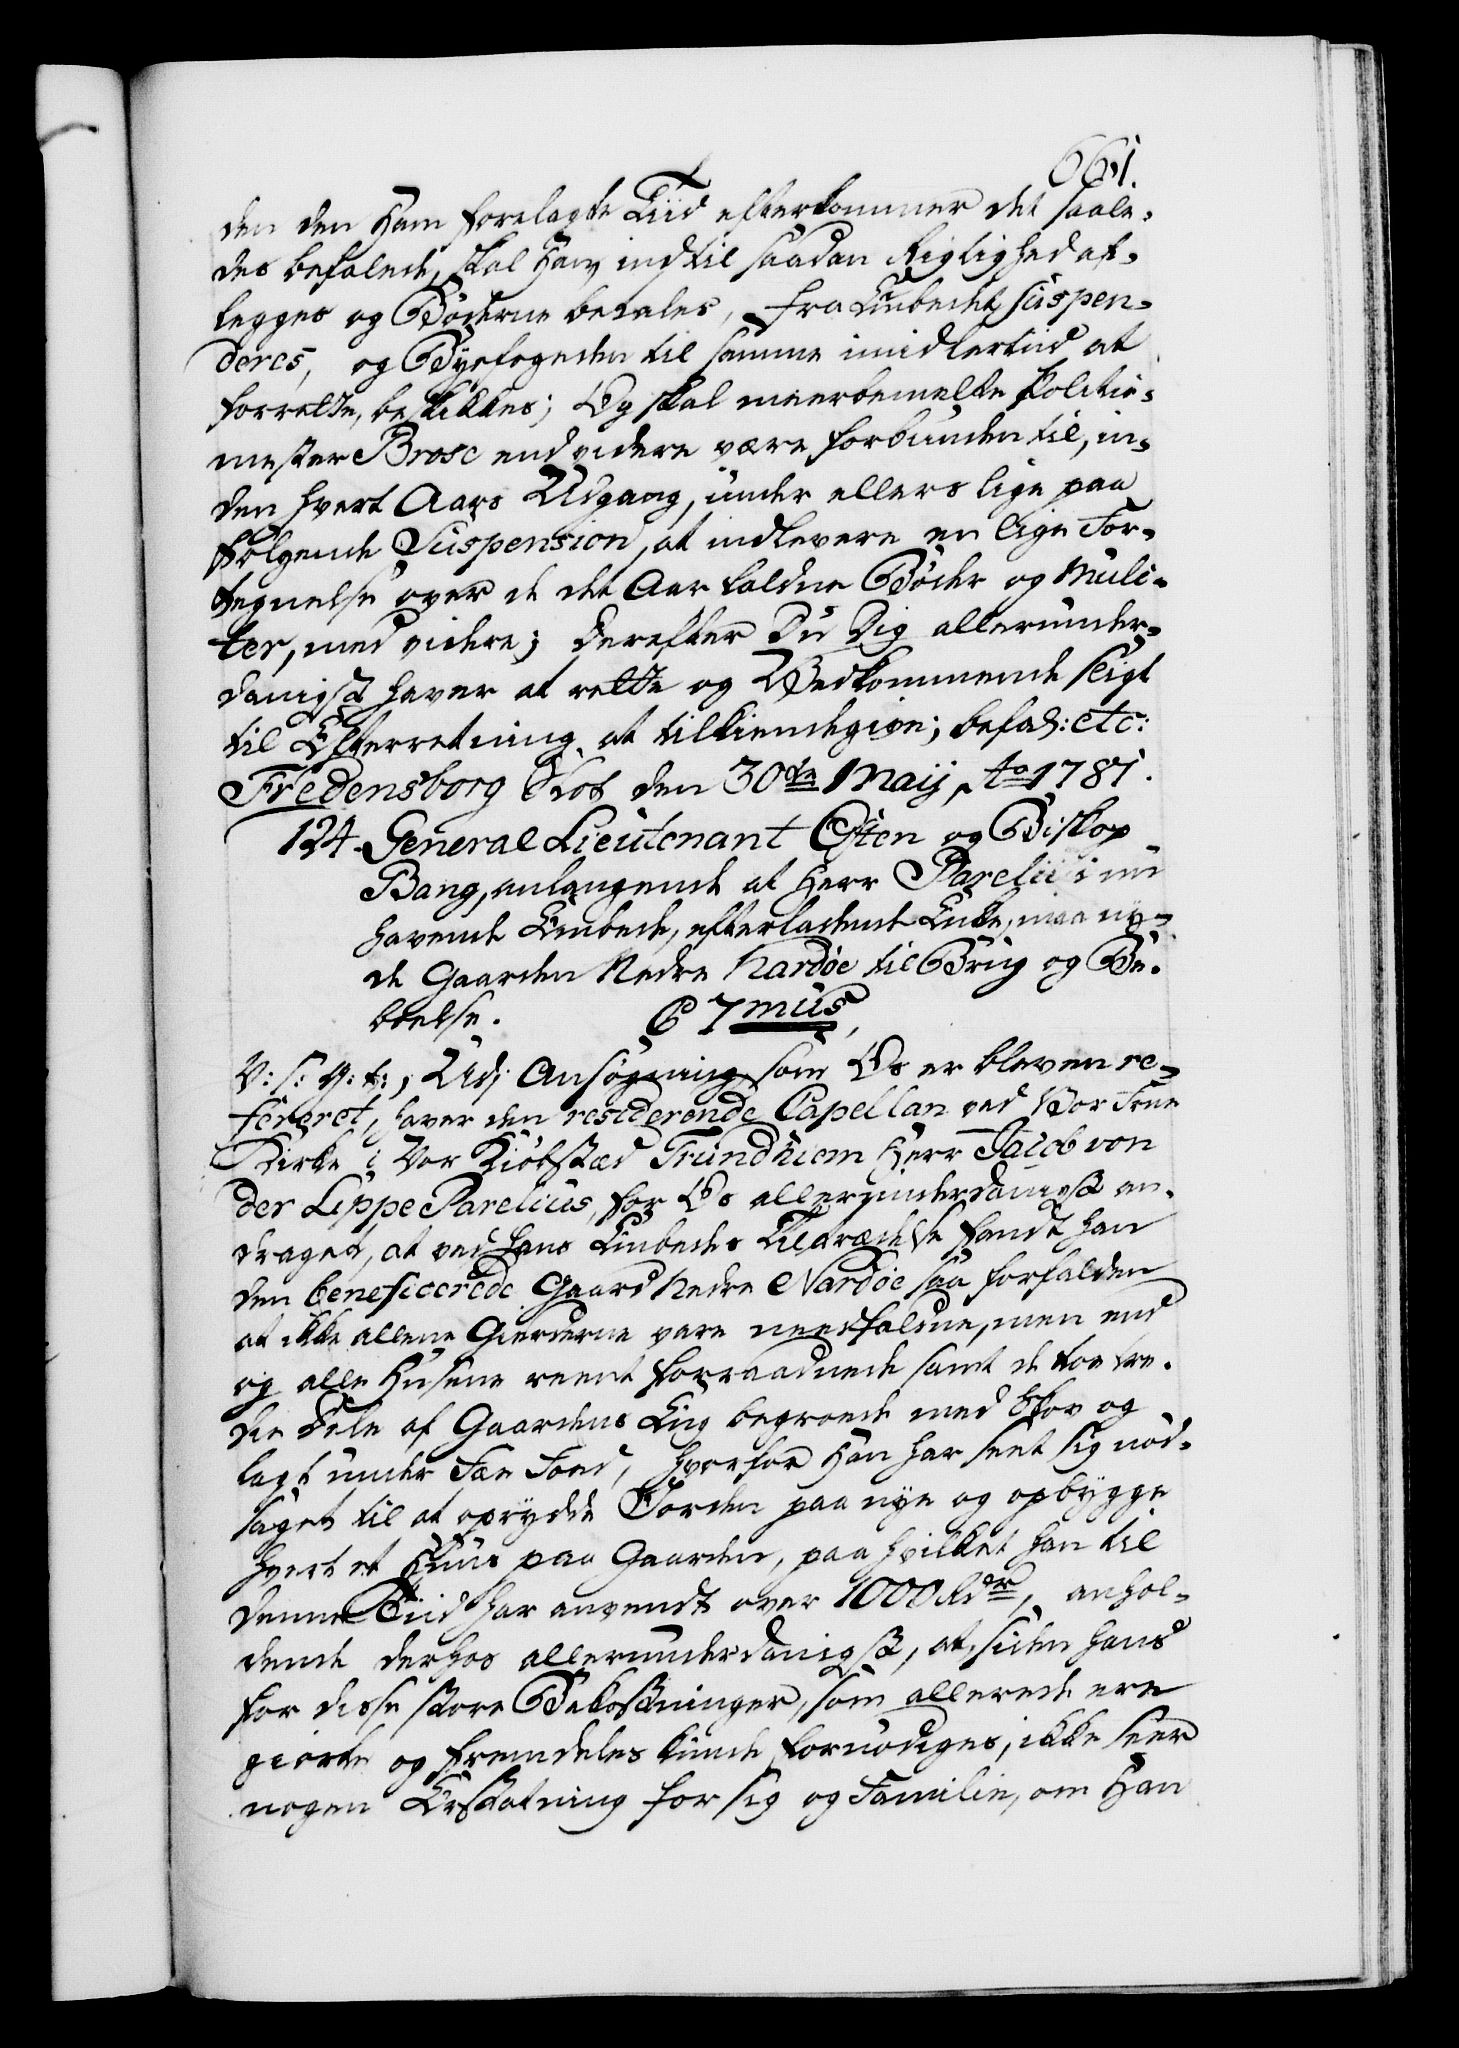 661.
den den Ham forelagte Tiid efterkommer det saale-
des befalede, skal Han, indtil saadan Rigtighed af-
legges og Bøderne betales, fra Embedet suspen-
deres, og Byefogeden til samme imidlertiid at
forrette, beskikkes; Og skal meerbemelte Politie-
mester Brose endvidere være forbunden til, in-
den hvert Aars Udgang, under ellers lige paa
følgende Suspension, at indlevere en lige For-
tegnelse over de det Aar faldne Bøder og Mulc-
ter, med videre; Derefter Du Dig allerunder-
danigst haver at rette og Vedkommende sligt
til Efterretning at tilkiendegive; befal: etc:
Fredensborg Slot den 30te Maij, Ao 1781.
124. General Lieutenant Osten og Biskop
Bang, anlangende at Herr Parelii i nu
havende Embede, efterladende Enke, maa ny-
de Gaarden Nedre Nardoe til Brug og Be-
boelse. C 7mus,
V: S: G: t:, Udj Ansøgning, som Os er bleven re-
fereret, haver den residerende Capellan ved Vor Frue
Kirke i Vor Kiøbstæd Trundhiem Herr Jacob von
der Lippe Parelius, for Os allerunderdanigst an-
draget, at ved hans Embedes Tiltrædelse fandt han
den beneficerede Gaard Nedre Nardoe saa forfalden
at ikke allene Gierderne vare neerfaldne, men end
og alle Husene reent forraadnede samt de toe tre-
die Dele af Gaardens Eng begroede med Skov og
lagt under Fæe Foed, hvorfor Han har seet sig nød-
saget til at oprydde Jorden paa nye og opbygge
hvert et Huus paa Gaarden, paa hvilket han til
denne Tiid har anvendt over 1000 Rdr, anhol-
dende derhos allerunderdanigst, at, siden hand
for disse store Bekostninger, som allerede ere
giorte og fremdeles kunde fornødiges, ikke seer
nogen Erstatning for sig og Familie, om Han